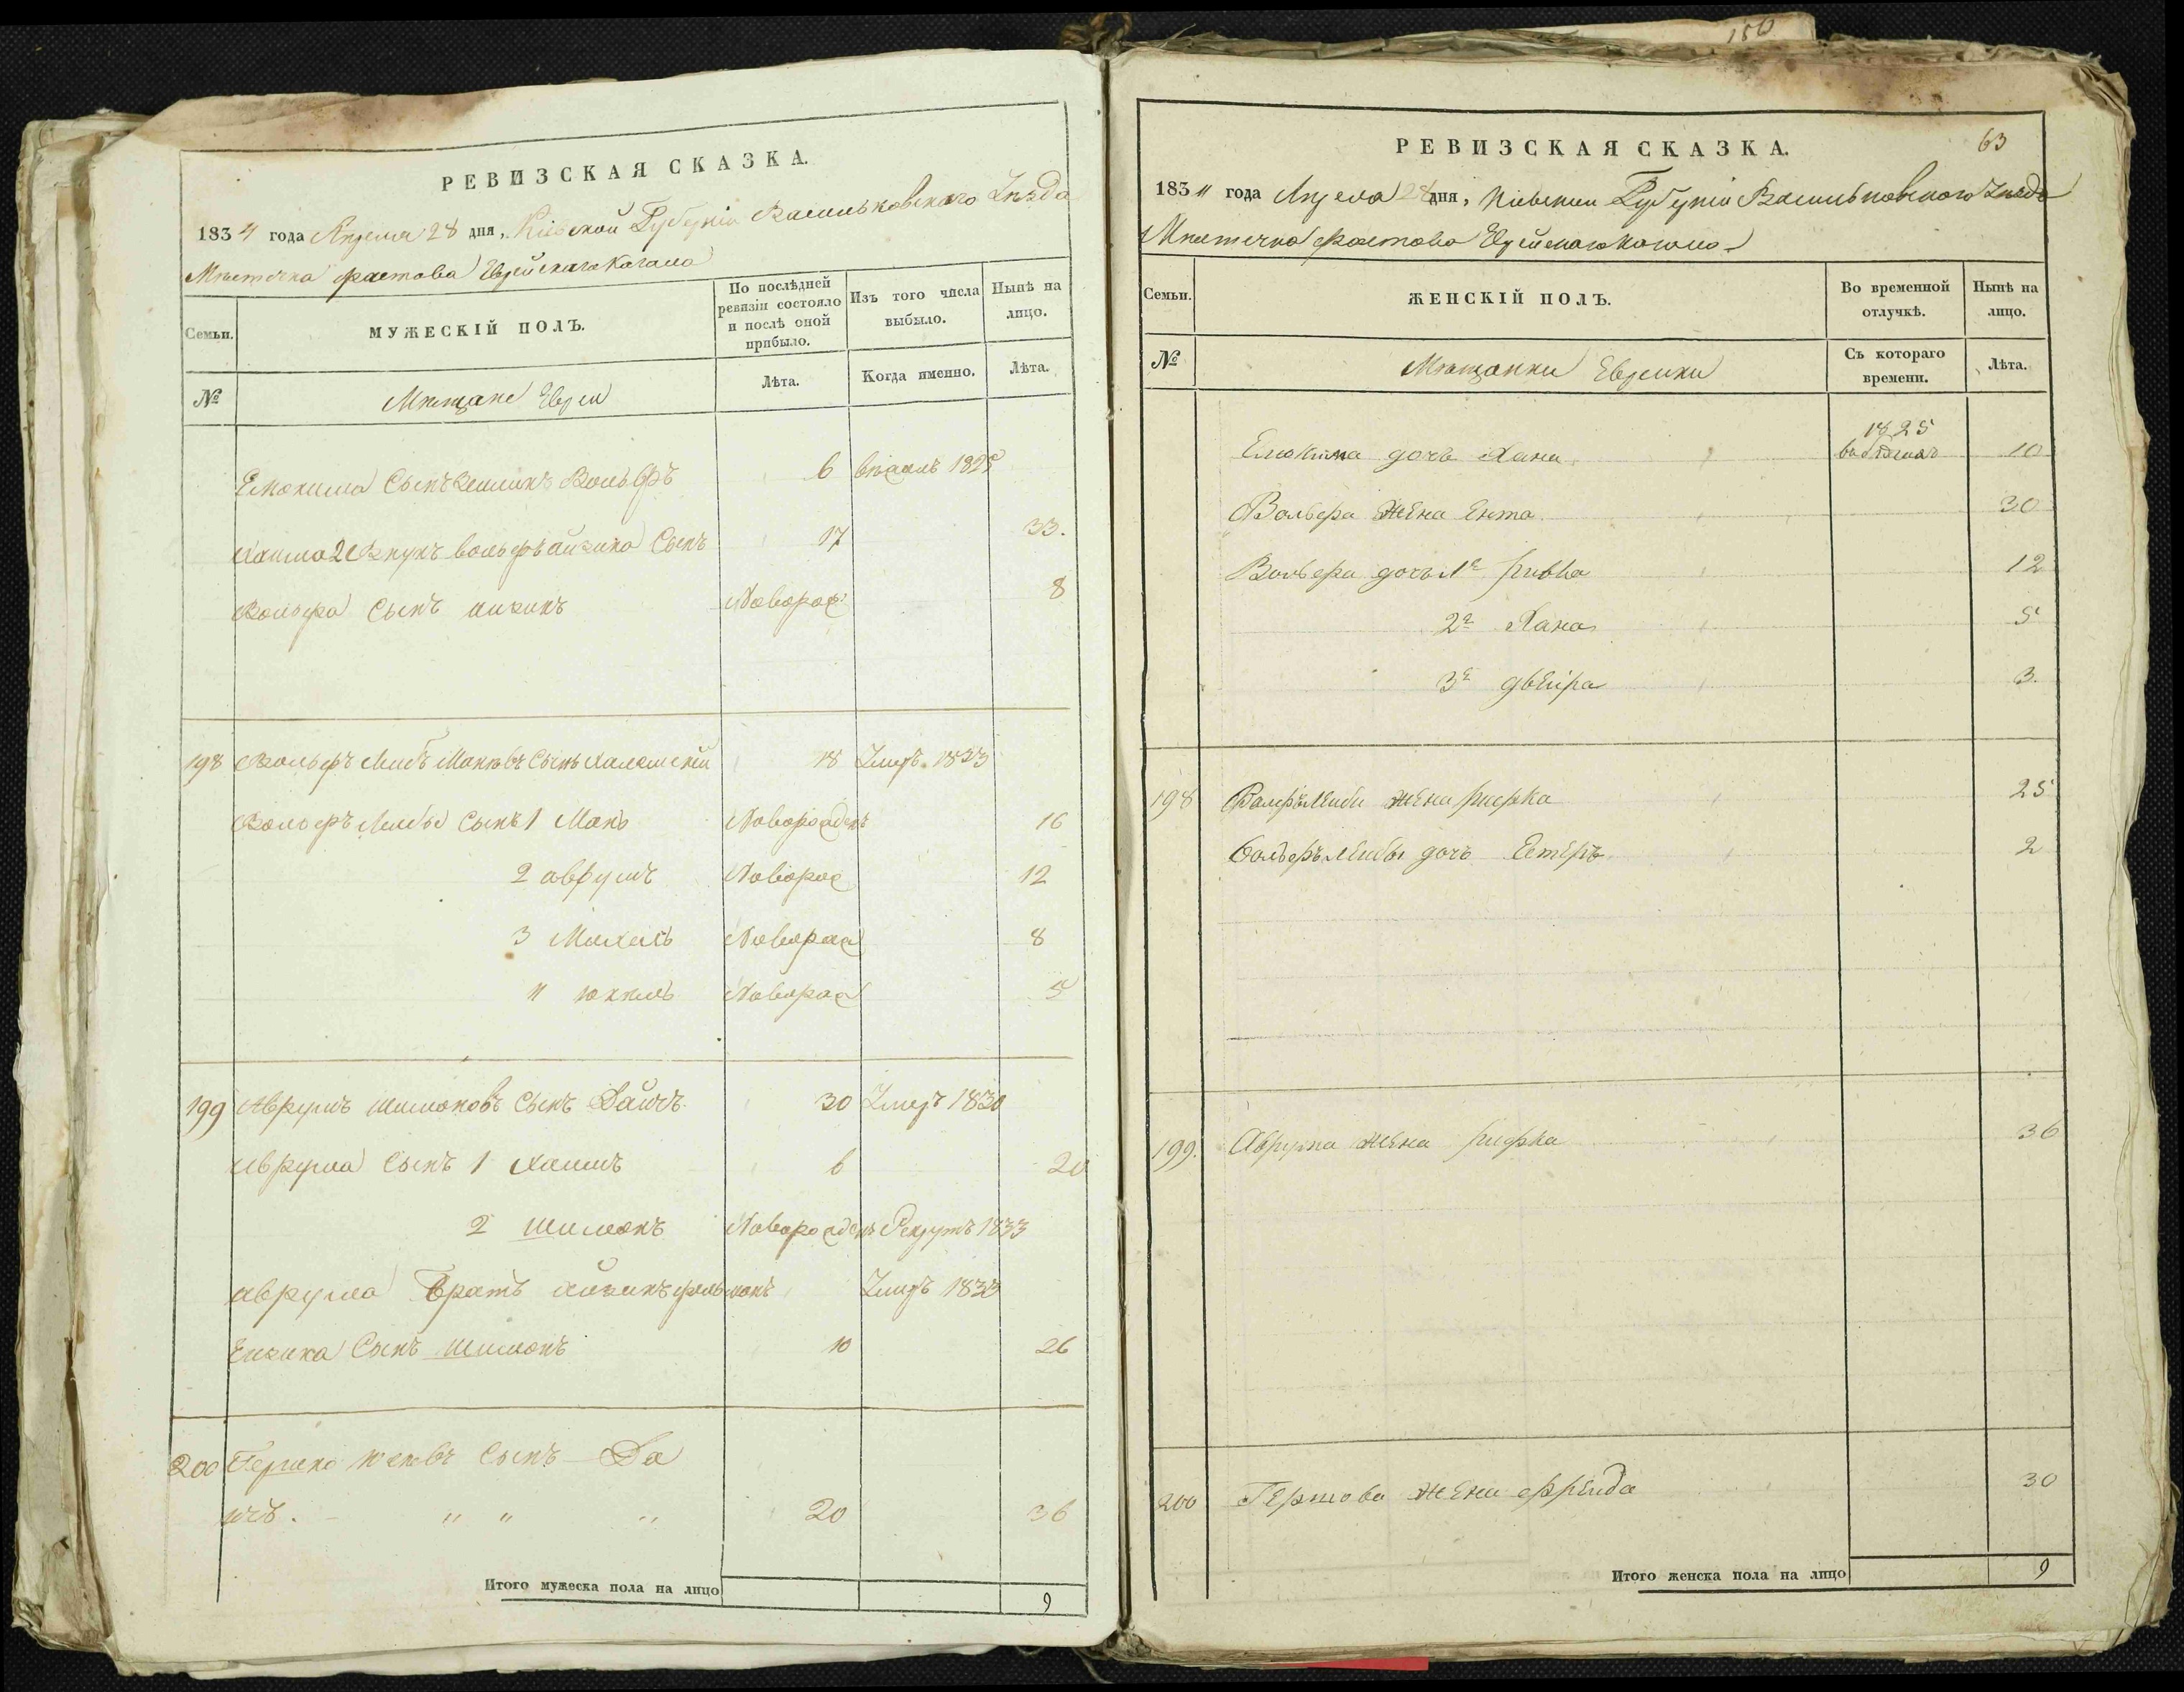 РЕВИЗСКАЯ СКАЗКА.
1834 года Апреля 28 дня, Кіевской Губерніи Васильковскаго Уѣзда
Мѣстечка Фастова Еврейскаго Кагала
Семьи.
МУЖЕСКІЙ ПОЛЪ.
По послѣдней ревизіи состояло и послѣ оной прибыло.
Изъ того числа выбыло.
Нынѣ на лицо.
№
Мещане Евреи
Лѣта.
Когда именно.
Лѣта.
сынъ Вольфъ 6 1825
Хаима 2й внукъ вольфъ айзика Сынъ 17 33.
Вольфа Сынъ айзикъ Новорож: 8
198 Вольфъ Лейбъ Сынъ 18 Умеръ 1823
Вольфъ Лейбы Сынъ 1 Новорожденъ 16
2 аврумъ Новорож 12
3 Михель Новорож 8
4 юкель Новорож 5
199 Аврумъ Шимоновъ Сынъ Дайчъ 30 Умеръ 1830
аврума Сынъ 1 Хаимъ 6 20
2 Шимонъ Новорожденъ Рекрутъ 1833
аврума Братъ айзикъ Умеръ 1833
Сынъ Шимонъ 10 26
200 Гершко Сынъ Да
йчъ. - " " " 20 36
Итого мужеска пола на лицо 9
150
63
РЕВИЗСКАЯ СКАЗКА.
1834 года Апреля 28 дня, Кіевской Губерніи Васильковскаго Уѣзда
Мѣстечка Фастова Еврейскаго Кагала
Семьи.
ЖЕНСКІЙ ПОЛЪ.
Во временной отлучкѣ.
Нынѣ на лицо.
№
Мѣщанки Еврейки
Съ котораго времени.
Лѣта.
дочь Хана 1825 10
Вольфа жена Ента 30
Вольфа дочь 1я ривка 12
2я Хана 5
3я двейра 3.
198 Вольфъ Лейби жена рифка 25
Вольфъ Лейбы дочь Естеръ 2
199. Аврума жена рифка 36
200 Гершова жена фрейда 30
Итого женска пола на лицо 9